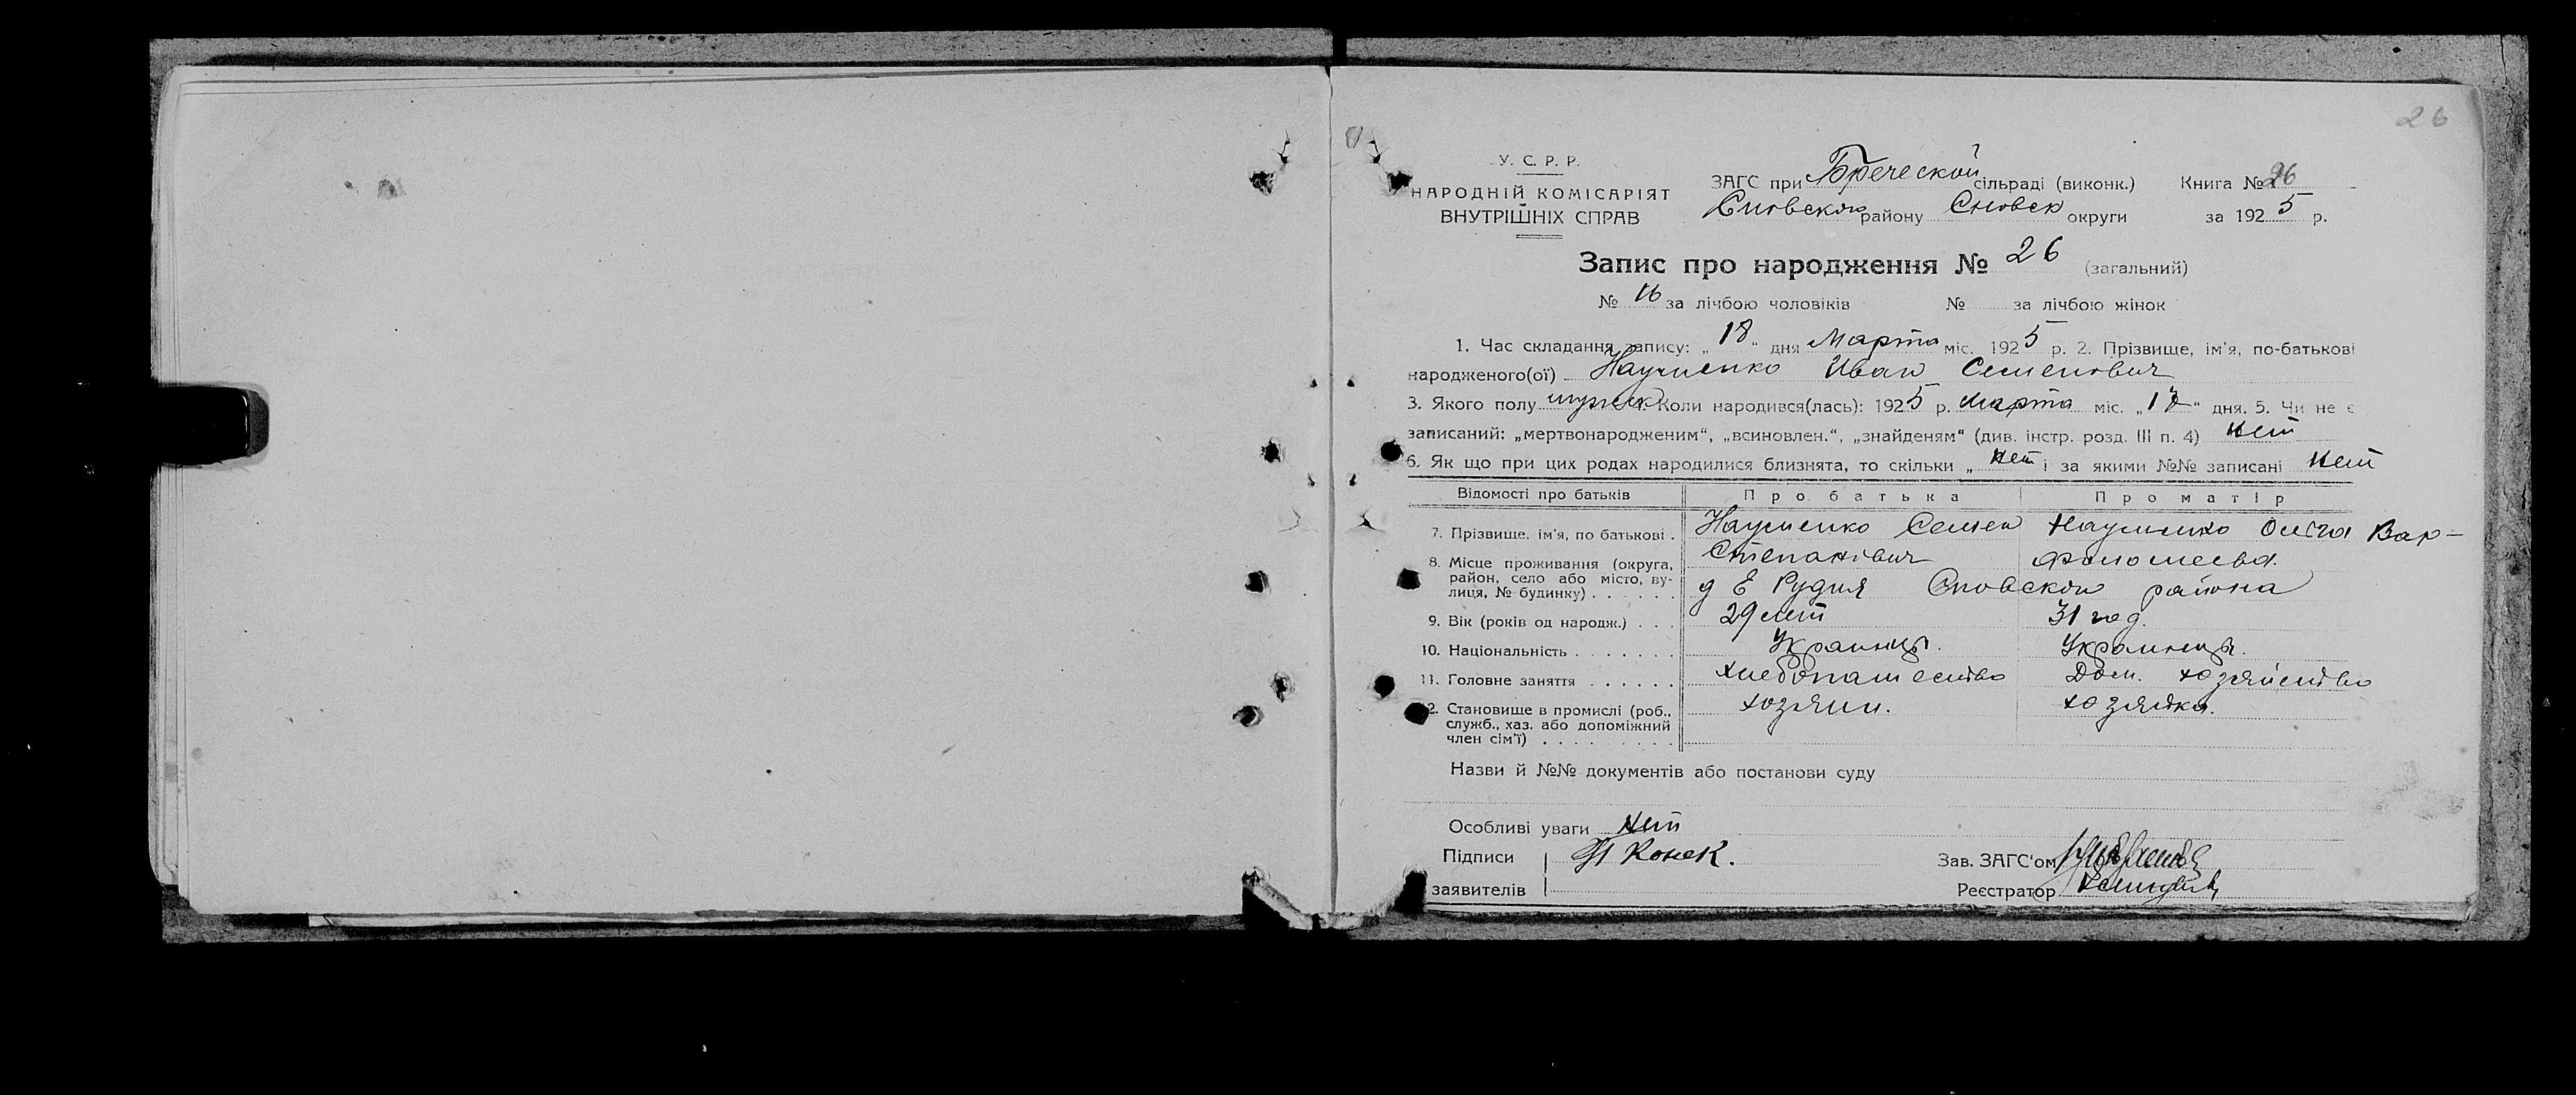 26
У. С. Р. Р.
НАРОДНІЙ КОМІСАРІЯТ
ВНУТРІШНІХ СПРАВ
ЗАГС при Бреческой сільраді (виконк.) Книга № 26
Сновского району Сновск округи за 1925 р.
Запис про народження № 26 (загальний)
№ 16 за лічбою чоловіків № за лічбою жінок
1. Час складання запису: „18“ дня Марта міс. 1925 р. 2. Прізвище, ім'я, по-батькові
народженого(ої) Науменко Иван Семенович
3. Якого полу мужск 4. Коли народився(лась): 1925 р. Марта міс. „17“ дня. 5. Чи не є
записаний: „мертвонародженим“, „всиновлен.“, „знайденям“ (див. інстр. розд. III п. 4) нет
6. Як що при цих родах народилися близнята, то скільки „ нет і за якими №№ записані нет
Відомості про батьків Про батька Про матір
7. Прізвище, ім'я, по батькові . Науменко Семен Науменко Ольга Вар-
Степанович фоломеевна.
8. Місце проживання (округа,
район, село або місто, ву-
лиця, № будинку) . . . . . . д Е Рудня Сновского района
9. Вік (років од народж.) . . . 29 лет 31 год.
10. Національність . . . . . . . Украинцы. Украинцы.
11. Головне заняття . . . . . . хлебопашество Дом. хозяйство
12. Становище в промислі (роб., хозяин. хозяйка.
служб., хаз. або допоміжний
член сім'ї) . . . . . . . . .
Назви й №№ документів або постанови суду
Особливі уваги нет
Підписи Конек.
заявителів
Зав. ЗАГС'ом
Реєстратор